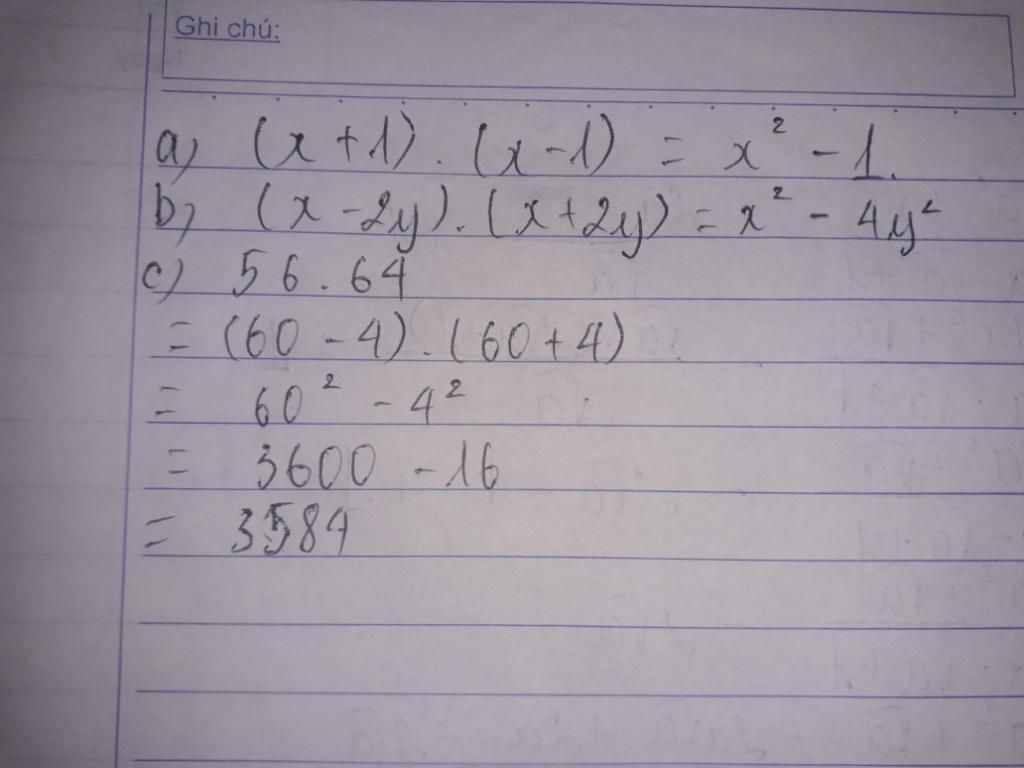 Ghi chú:
a) (x + 1) . (x - 1) = x² - 1.
b) (x - 2y) . (x + 2y) = x² - 4y²
c) 56 . 64
= (60 - 4) . (60 + 4)
= 60² - 4²
= 3600 - 16
= 3584